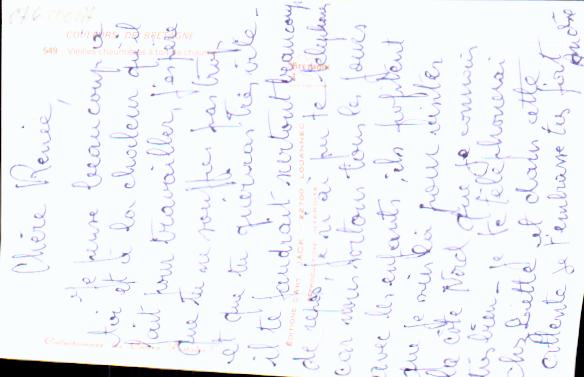 Chère Renée,
Je pense beaucoup à
toi et à la chaleur qu'il
fait pour travailler, j'espère
que tu ne souffres pas trop
et que tu guériras très vite -
il te faudrait surtout beaucoup
de repos, je n'ai pu te téléphoner
car nous sortons tous les jours
avec les enfants, ils profitent
que je suis là pour visiter
la côte Nord que je connais
très bien - je te téléphonerai
chez Lisette et dans cette
attente je t'embrasse très fort
COULEURS DE BRETAGNE
549 - Vieilles chaumières
ÉDITIONS D'ART JACK 22700 LOUANNEC
REPRODUCTION INTERDITE